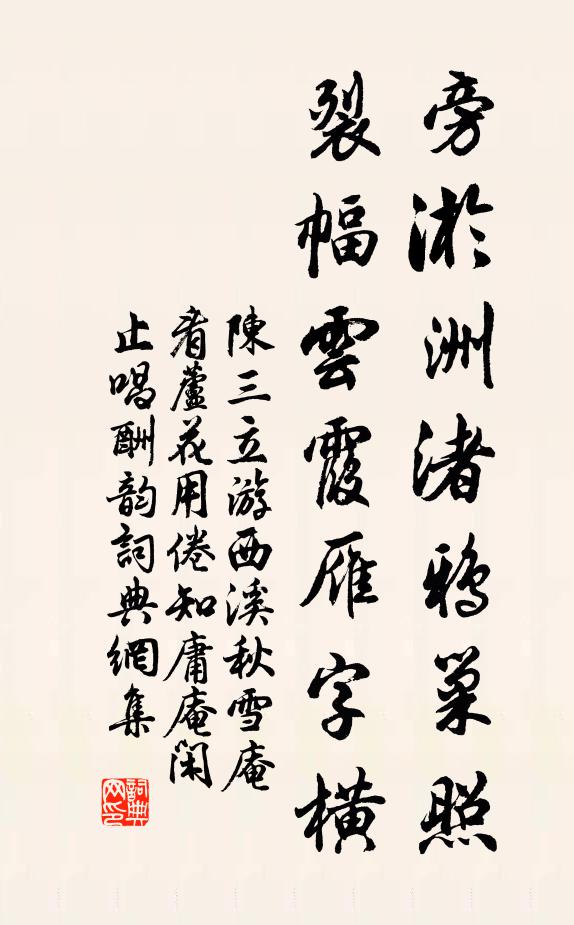 旁淤洲渚鴉巢照
裂幅雲霞雁字橫
陳三立游西溪秋雪庵
看蘆花用倦知庸庵閑
止唱酬韵詞典網集
詞典网印